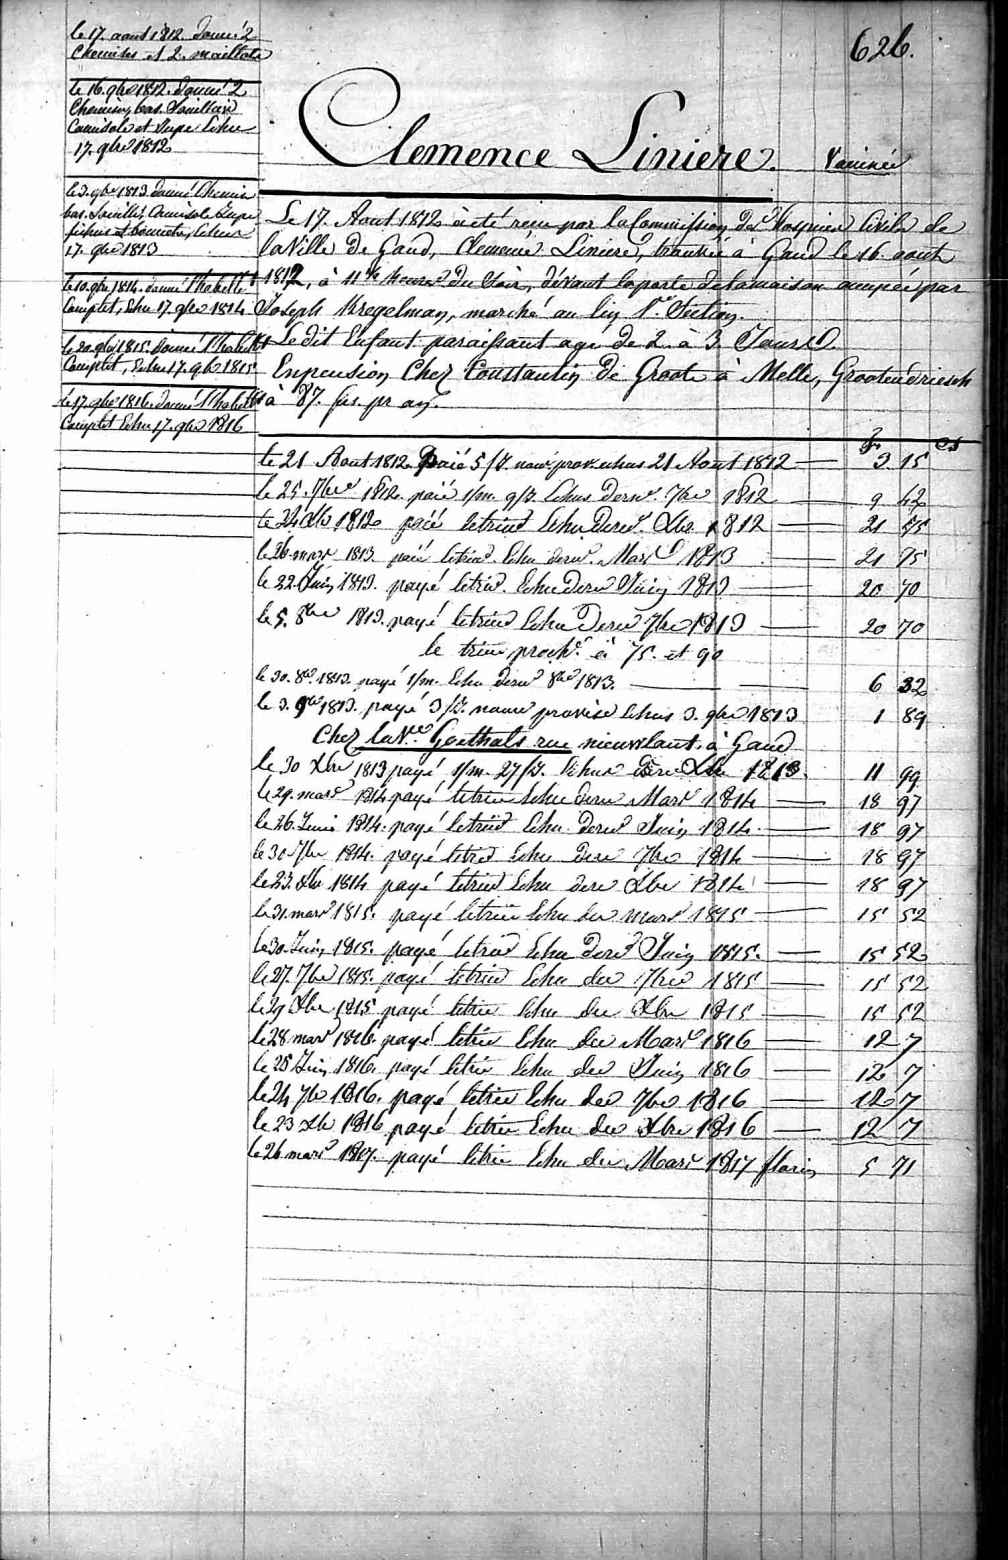 626.
le 17. aout 1812. donné 2
Chemises et 2. maillots
le 16. 9bre 1812. donné 2
Chemises, bas,
Camisole et Jupe Echu
17. 9bre 1812
le 3. 9bre 1813 donné Chemise
bas, Camisole Jupe
fichus et bonnets, Echus
17. 9bre 1813
le 10. 9bre 1814. donné l'habillet
Complet, Echu 17. 9bre 1814
le 20. 9bre 1815. donné l'habillet
Complet, Echu 17. 9b 1815
le 17. 9bre 1816. donné l'habillet
Complet Echu 17. 9bre 1816
Clemence Liniere. Vaccinée
Le 17. Aout 1812 a été reçu par la Commission des Hospices Civils de
la Ville de Gand, Clemence Liniere, trouvée à Gand le 16. aout
1812, à 11 heures du Soir, devant la porte de la maison occupée par
Joseph Kregelman, marché au lin 1re Section.
Le dit Enfant paraissant agé de 2. à 3. Jours
En pension Chez Constantin De Groote à Melle, Grootendriesch
à 87. frs. pr an.
fr. cs
le 21 Aout 1812. Paié 5/J. echus 21 Aout 1812 3 15
le 25. 7bre 1812. paié 1/m. 9/J. Echus dernr. 7bre 1812 9 42
le 24 Xbr 1812 paié le trim Echu dernr. Xbr 1812 21 75
le 26 mars 1813. paié le trim. Echu dernr. Mars 1813 21 75
le 22. Juin 1813. payé le trim. Echu derr Juin 1813 20 70
le 5. 8bre 1813. payé le trim Echu derr 7bre 1813 20 70
le trim proch. à 75. et 90
le 30. 8bre 1813 payé 1/m. Echu dernr 8bre 1813. 6 32
le 3. 9bre 1813. payé 3/J. Echus 3. 9bre 1813 1 89
Chez la Ve. Goethals rue nieuwlant, à Gand
le 30 Xbre 1813 payé 1/m. 27/J. Echus derr Xbr 1813. 11 99
le 29. mars 1814 payé le trim Echu dernr Mars 1814 18 97
le 26. Juin 1814. payé le trim Echu dernr Juin 1814. 18 97
le 30 7bre 1814. payé le trim Echu derr 7bre 1814 18 97
le 23. Xbr 1814 payé le trim Echu derr Xbre 1814 18 97
le 31. mars 1815. payé le trim Echu der mars 1815 15 52
le 30. Juin 1815. payé le trim Echu derr Juin 1815. 15 52
le 27. 7bre 1815. payé le trim Echu der 7bre 1815 15 52
le 29 Xbre 1815 payé le trim Echu der Xbre 1815 15 52
le 28 mars 1816. payé le trim Echu der Mars 1816 12 7
le 28 Juin 1816. payé le trim Echu der Juin 1816 12 7
le 24 7br 1816. payé le trim Echu der 7bre 1816 12 7
le 23 Xbr 1816 payé le trim Echu der Xbre 1816 12 7
le 26 mars 1817. payé le trim Echu der Mars 1817 florins 5 71